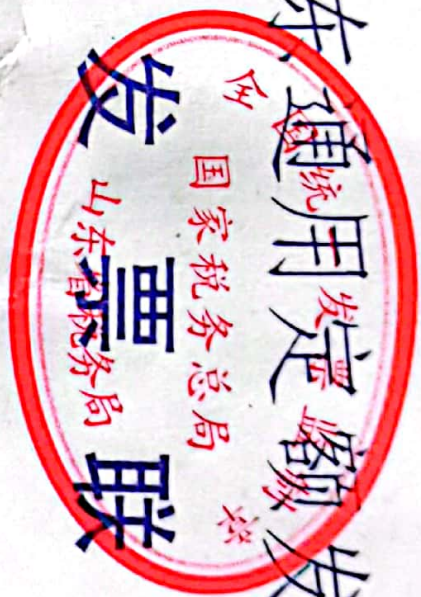 东通用定额发
全国统一发票监制章
国家税务总局
山东省税务局
发票联